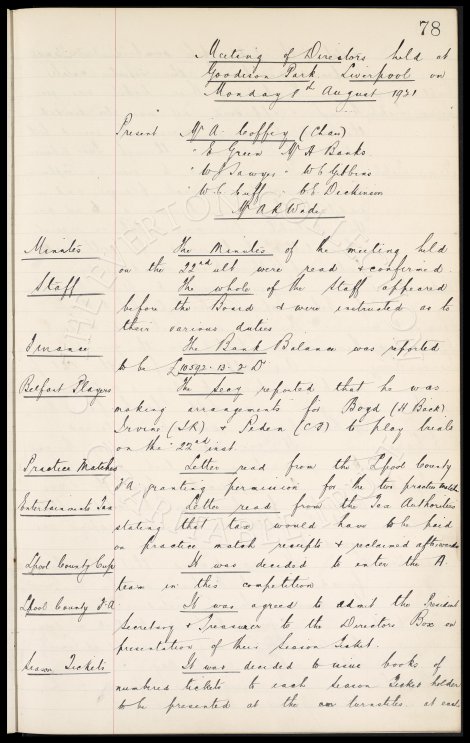 78
Meeting of Directors held at
Goodison Park Liverpool on
Monday 1st August 1921
Present Mr A Coffey (Chair)
" E Green Mr A Banks
" W Sawyer " W C Gibbins
" W C Cuff " C E Dickinson
Mr A R Wade
Minutes The Minutes of the meeting held
on the 22nd ult were read & confirmed.
Staff The whole of the Staff appeared
before the Board & were instructed as to
their various duties
Finance The Bank Balance was reported
to be £10592. 13. 2 Dr
Belfast Players The Secy reported that he was
making arrangements for Boyd (H Back)
Irvine (I.R) & Peden (C F) to play trials
on the 22nd inst.
Practice Matches Letter read from the Lpool County
F A granting permission for the two practice matches
Entertainments Tax Letter read from the Tax Authorities
stating that tax would have to be paid
on practice match receipts & reclaimed afterwards
Lpool County Cup It was decided to enter the A
team in this competition
Lpool County F.A It was agreed to admit the President
Secretary & Treasurer to the Directors Box on
presentation of their Season Ticket.
Season Tickets It was decided to issue books of
numbered tickets to each Season Ticket holder
to be presented at the turnstiles at each